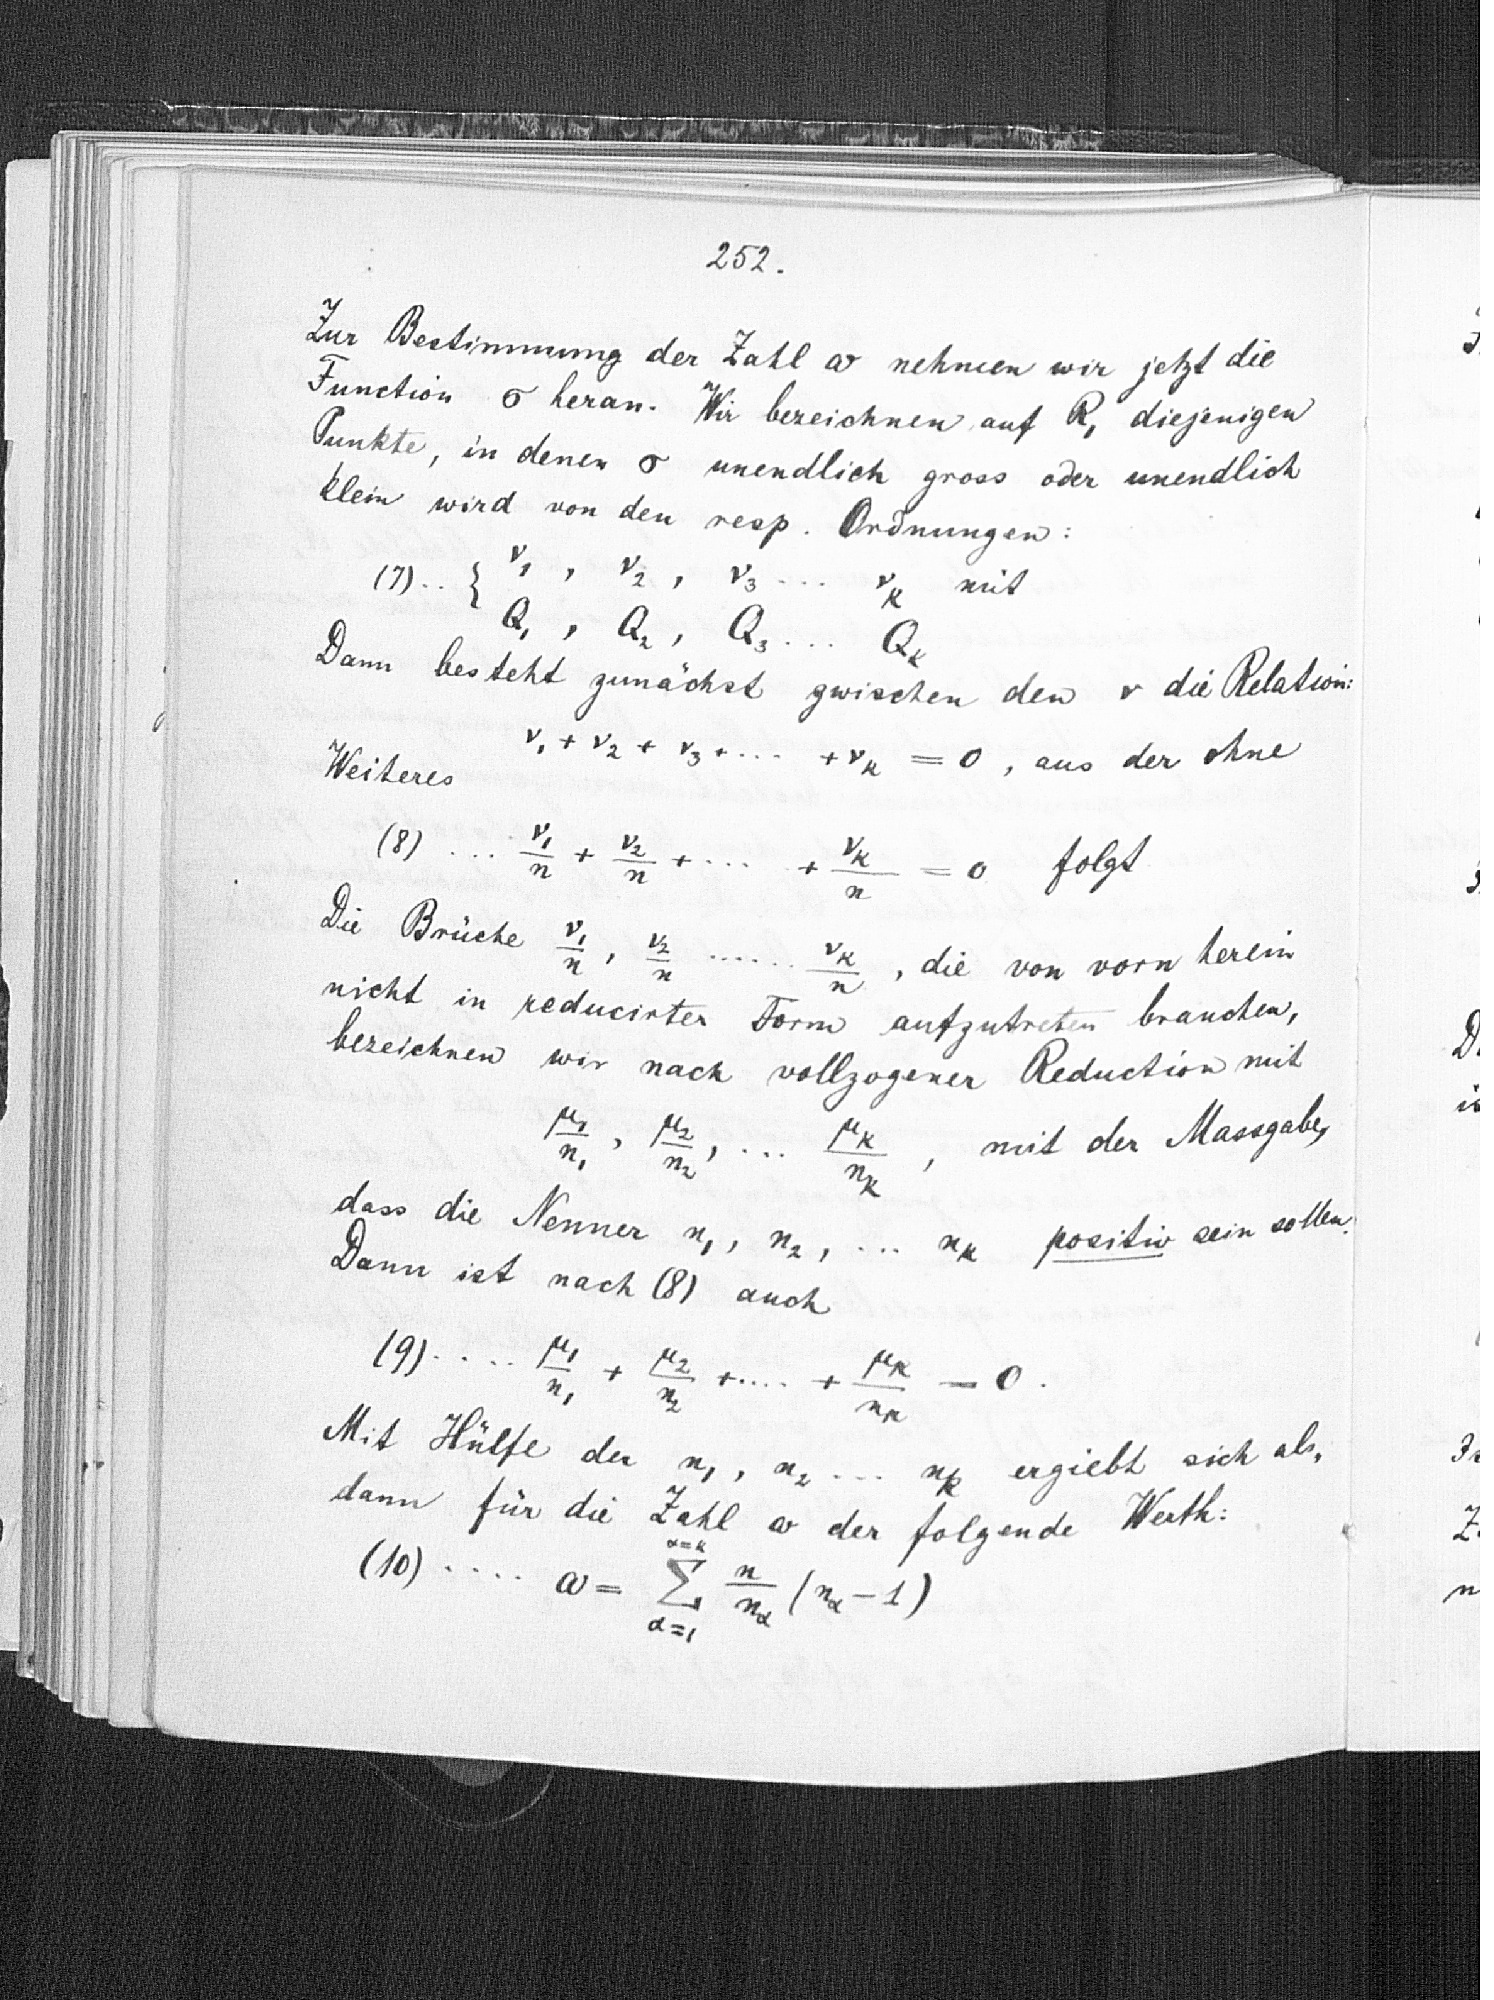 252.
Zur Bestimmung der Zahl w nehmen wir jetzt die
Function σ heran. Wir bezeichnen auf R₁ diejenigen
Punkte, in denen σ unendlich gross oder unendlich
klein wird von den resp. Ordnungen:
(7).. { ν₁ , ν₂ , ν₃ ... ν_k mit
Q₁ , Q₂ , Q₃ ... Q_k
Dann besteht zunächst zwischen den ν die Relation:
ν₁ + ν₂ + ν₃ + .... + ν_k = 0 , aus der ohne
Weiteres
(8) ... ν₁/n + ν₂/n + .... + ν_k/n = 0 folgt
Die Brüche ν₁/n , ν₂/n ...... ν_k/n , die von vorn herein
nicht in reducirter Form aufzutreten brauchen,
bezeichnen wir nach vollzogener Reduction mit
μ₁/n₁ , μ₂/n₂ , ... μ_k/n_k , mit der Massgabe,
dass die Nenner n₁ , n₂ , ... n_k positiv sein sollen.
Dann ist nach (8) auch
(9) ..... μ₁/n₁ + μ₂/n₂ + .... + μ_k/n_k = 0 .
Mit Hülfe der n₁ , n₂ ... n_k ergiebt sich als,
dann für die Zahl w der folgende Werth:
(10) ..... w = ∑_{α=1}^{α=k} n/n_α (n_α − 1)